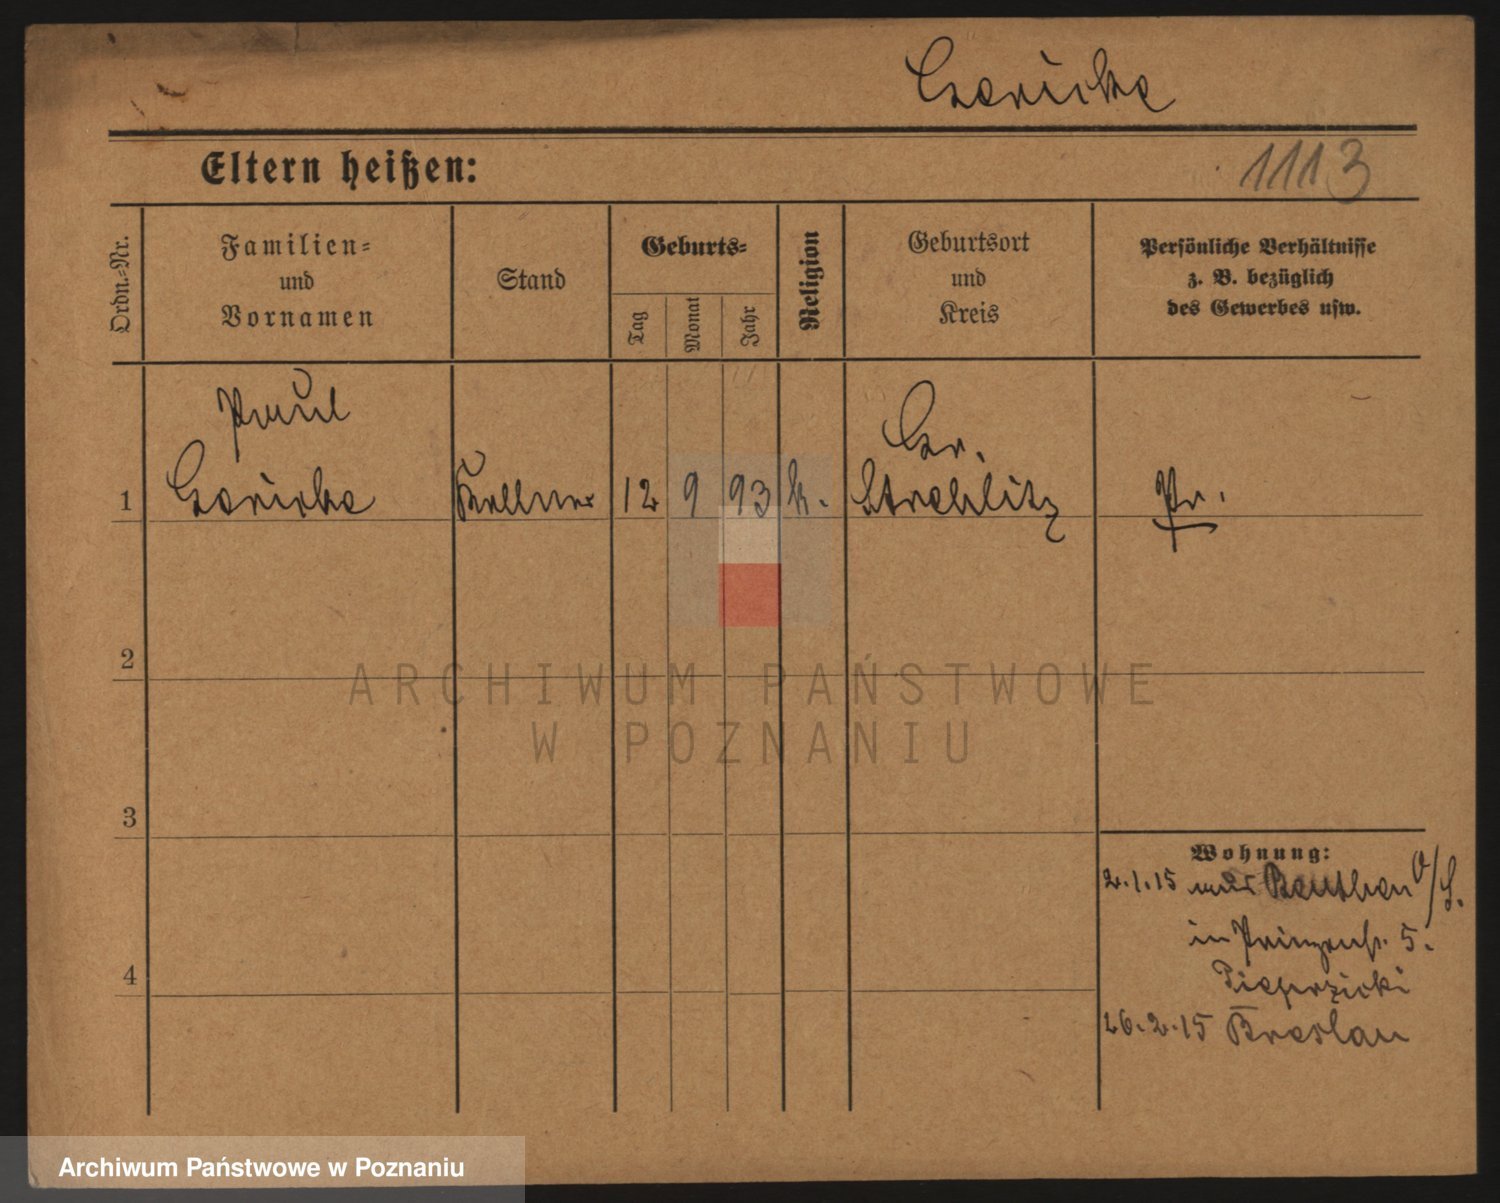 Gericke
Eltern heißen:
1113
Ordn.=Nr.
Familien=
und
Vornamen
Stand
Geburts=
Tag
Monat
Jahr
Religion
Geburtsort
und
Kreis
Persönliche Verhältnisse
z. B. bezüglich
des Gewerbes usw.
Paul
1 Gericke Kellner 12 9 93 k. Gr. Strehlitz Pr.
2
ARCHIWUM PAŃSTWOWE
W POZNANIU
3
Wohnung:
2.1.15 aus Beuthen O/S.
in Prinzenst. 5.
4
26.2.15 Breslau
Archiwum Państwowe w Poznaniu